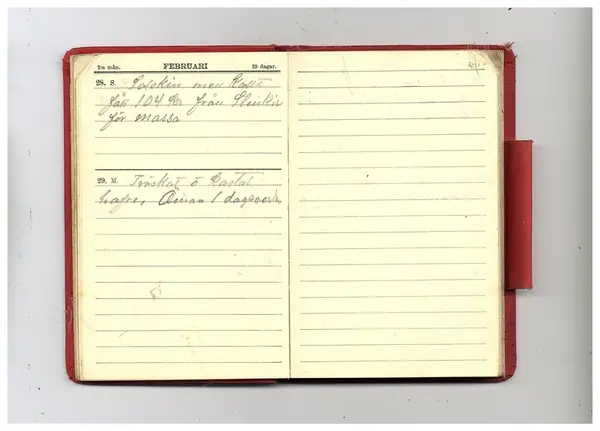 2:a mån. FEBRUARI 29 dagar.
28. S. Solskin men Kallt
fått 104 Kr från
för massa
29. M. Tröskat o Kastat
hafre, 1 dagsverk